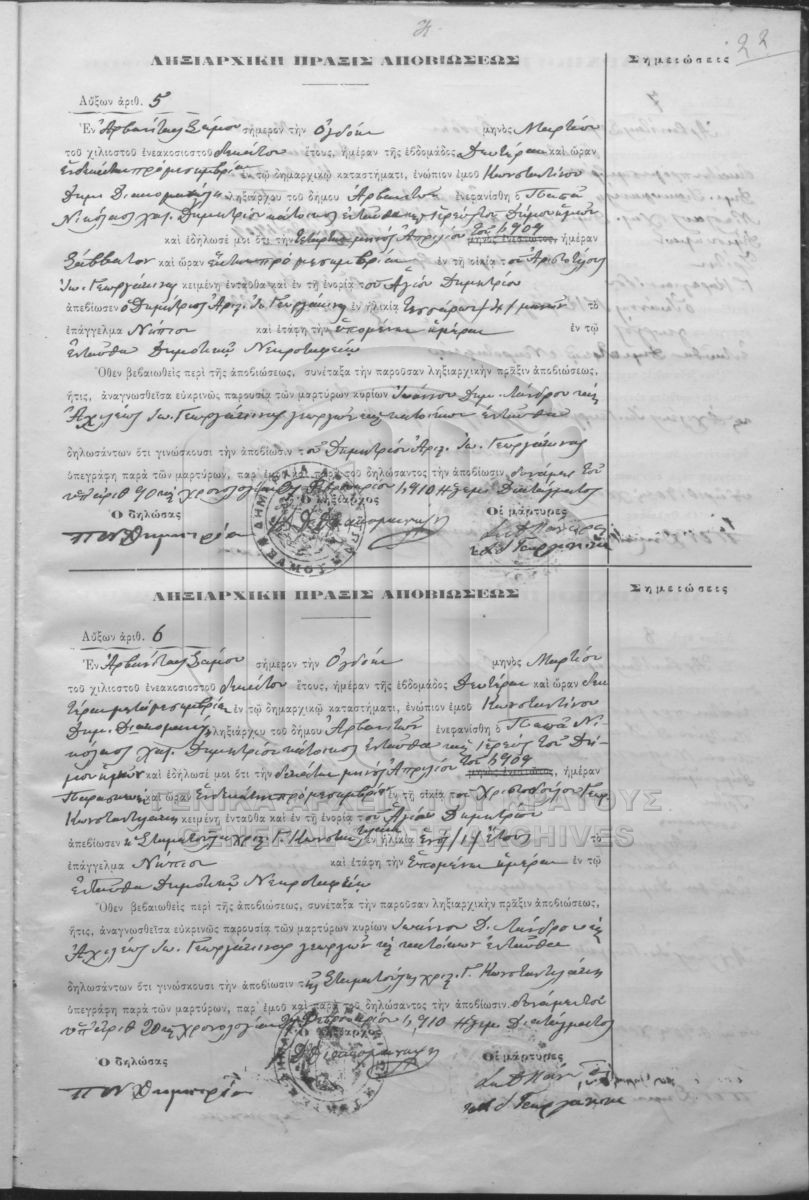 22
ΛΗΞΙΑΡΧΙΚΗ ΠΡΑΞΙΣ ΑΠΟΒΙΩΣΕΩΣ
Σημειώσεις
Αὔξων ἀριθ. 5
Ἐν Ἀρβανίταις Σάμου σήμερον τὴν Ὀγδόην μηνὸς Μαρτίου
τοῦ χιλιοστοῦ ἐνεακοσιοστοῦ δεκάτου ἔτους, ἡμέραν τῆς ἑβδομάδος Δευτέραν καὶ ὥραν
ἑνδεκάτην πρὸ μεσημβρίας ἐν τῷ δημαρχικῷ καταστήματι, ἐνώπιον ἐμοῦ Κωνσταντίνου
Δημ. Διακομανώλη ληξιάρχου τοῦ δήμου Ἀρβανιτῶν ἐνεφανίσθη ὁ Παπᾶ
Νικόλαος χατ. Δημητρίου κάτοικος ἐνταῦθα καὶ ἱερεὺς τοῦ Δήμου ἡμῶν
καὶ ἐδήλωσέ μοι ὅτι τὴν τετάρτην μηνὸς Ἀπριλίου τοῦ 1,909 μηνὸς ἐνεστῶτος, ἡμέραν
Σάββατον καὶ ὥραν ἕκτην πρὸ μεσημβρίας ἐν τῇ οἰκίᾳ τοῦ Ἀριστοτέλους
Ἰω. Γεωργάκινας κειμένῃ ἐνταῦθα καὶ ἐν τῇ ἐνορίᾳ τοῦ Ἁγίου Δημητρίου
ἀπεβίωσεν ὁ Δημήτριος Ἀριζ. Ἰω. Γεωργάκινας ἐν ἡλικίᾳ τεσσάρων /4/ μηνῶν τὸ
ἐπάγγελμα Νήπιον καὶ ἐτάφη τὴν ἑπομένην ἡμέραν ἐν τῷ
ἐνταῦθα Δημοτικῷ Νεκροταφείῳ
Ὅθεν βεβαιωθεὶς περὶ τῆς ἀποβιώσεως, συνέταξα τὴν παροῦσαν ληξιαρχικὴν πρᾶξιν ἀποβιώσεως,
ἥτις, ἀναγνωσθεῖσα εὐκρινῶς παρουσίᾳ τῶν μαρτύρων κυρίων Ἰωάννου Δημ. Λάνδρου καὶ
Ἀχιλέως Ἰω. Γεωργάκινας γεωργῶν καὶ κατοίκων ἐνταῦθα
δηλωσάντων ὅτι γινώσκουσι τὴν ἀποβίωσιν τοῦ Δημητρίου Ἀριζ. Ἰω. Γεωργάκινας
ὑπεγράφη παρὰ τῶν μαρτύρων, παρ' ἐμοῦ καὶ παρὰ τοῦ δηλώσαντος τὴν ἀποβίωσιν δυνάμει τοῦ
ὑπ' ἀριθ 20 καὶ χρονολογίαν Φεβρουαρίου 1,910 Ἡγεμ. Διατάγματος
Ὁ ληξίαρχος
Ὁ δηλώσας
Οἱ μάρτυρες
ΛΗΞΙΑΡΧΙΚΗ ΠΡΑΞΙΣ ΑΠΟΒΙΩΣΕΩΣ
Σημειώσεις
Αὔξων ἀριθ. 6
Ἐν Ἀρβανίταις Σάμου σήμερον τὴν Ὀγδόην μηνὸς Μαρτίου
τοῦ χιλιοστοῦ ἐνεακοσιοστοῦ δεκάτου ἔτους, ἡμέραν τῆς ἑβδομάδος Δευτέραν καὶ ὥραν δευ
τέραν μετὰ μεσημβρίαν ἐν τῷ δημαρχικῷ καταστήματι, ἐνώπιον ἐμοῦ Κωνσταντίνου
Δημ. Διακομανώλη ληξιάρχου τοῦ δήμου Ἀρβανιτῶν ἐνεφανίσθη ὁ Παπᾶ Νι
κόλαος χατ. Δημητρίου κάτοικος ἐνταῦθα καὶ ἱερεὺς τοῦ Δή
μου ἡμῶν καὶ ἐδήλωσέ μοι ὅτι τὴν δεκάτην μηνὸς Ἀπριλίου τοῦ 1,909 μηνὸς ἐνεστῶτος, ἡμέραν
Παρασκευὴν καὶ ὥραν ἑνδεκάτην πρὸ μεσημβρίας ἐν τῇ οἰκίᾳ τοῦ Χριστοδούλου Γεωρ.
Κωνσταντιλάκη κειμένῃ ἐνταῦθα καὶ ἐν τῇ ἐνορίᾳ τοῦ Ἁγίου Δημητρίου
ΓΕΝΙΚΑ ΑΡΧΕΙΑ ΤΟΥ ΚΡΑΤΟΥΣ
GENERAL STATE ARCHIVES
ἀπεβίωσεν ἡ Σταματούλη χριζ. Γ. Κωνσταντιλάκη ἐν ἡλικίᾳ ἑνὸς /1/ ἔτους τὸ
ἐπάγγελμα Νήπιον καὶ ἐτάφη τὴν ἑπομένην ἡμέραν ἐν τῷ
ἐνταῦθα Δημοτικῷ Νεκροταφείῳ
Ὅθεν βεβαιωθεὶς περὶ τῆς ἀποβιώσεως, συνέταξα τὴν παροῦσαν ληξιαρχικὴν πρᾶξιν ἀποβιώσεως,
ἥτις, ἀναγνωσθεῖσα εὐκρινῶς παρουσίᾳ τῶν μαρτύρων κυρίων Ἰωάννου Δ. Λάνδρου καὶ
Ἀχιλέως Ἰω. Γεωργάκινας γεωργῶν καὶ κατοίκων ἐνταῦθα
δηλωσάντων ὅτι γινώσκουσι τὴν ἀποβίωσιν τῆς Σταματούλης χριζ. Γ. Κωνσταντιλάκη
ὑπεγράφη παρὰ τῶν μαρτύρων, παρ' ἐμοῦ καὶ παρὰ τοῦ δηλώσαντος τὴν ἀποβίωσιν δυνάμει τοῦ
ὑπ' ἀριθ 20 καὶ χρονολογίαν Φεβρουαρίου 1,910 Ἡγεμ. Διατάγματος
Ὁ ληξίαρχος
Ὁ δηλώσας
Οἱ μάρτυρες